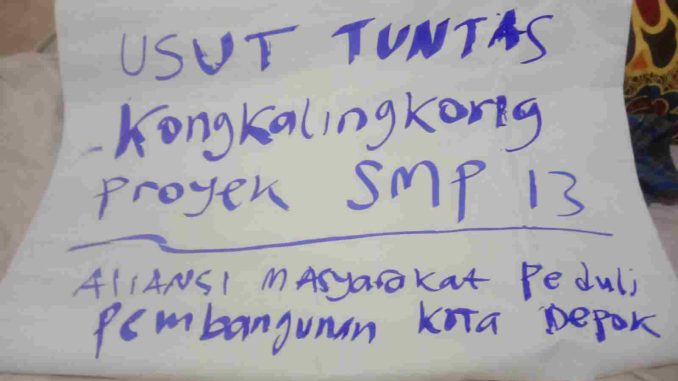 USUT TUNTAS
- Kongkalingkong
proyek SMP 13
AliANSI MASyarakat Peduli
Pembangunan Kota Depok